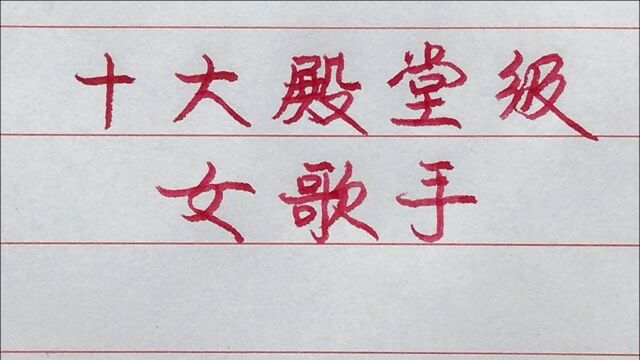 十大殿堂级
女歌手